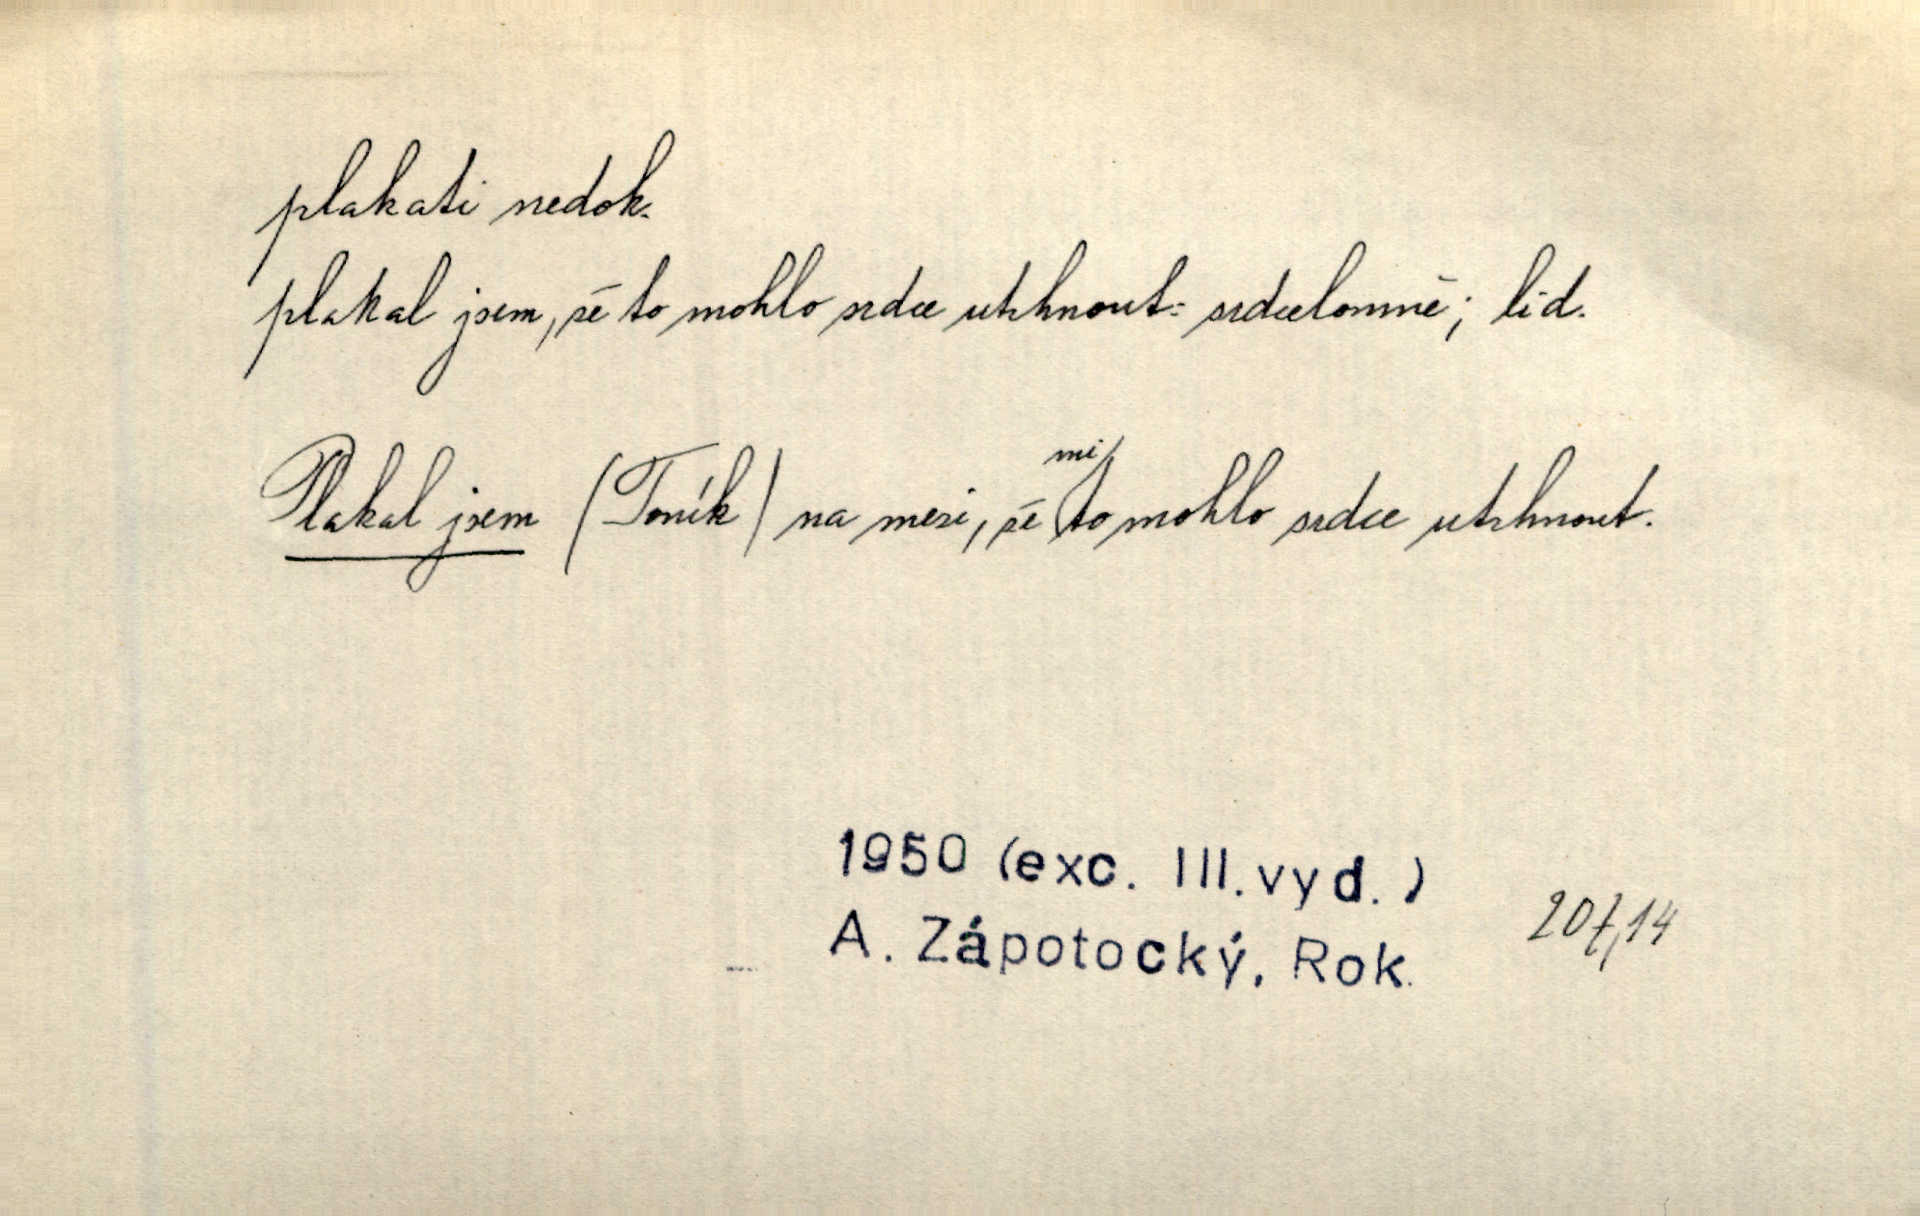 plakati nedok.
plakal jsem, že to mohlo srdce utrhnout: srdcelomně; lid.
Plakal jsem (Toník) na mezi, že mi to mohlo srdce utrhnout.
1950 (exc. III. vyd.)
A. Zápotocký, Rok.
207,14